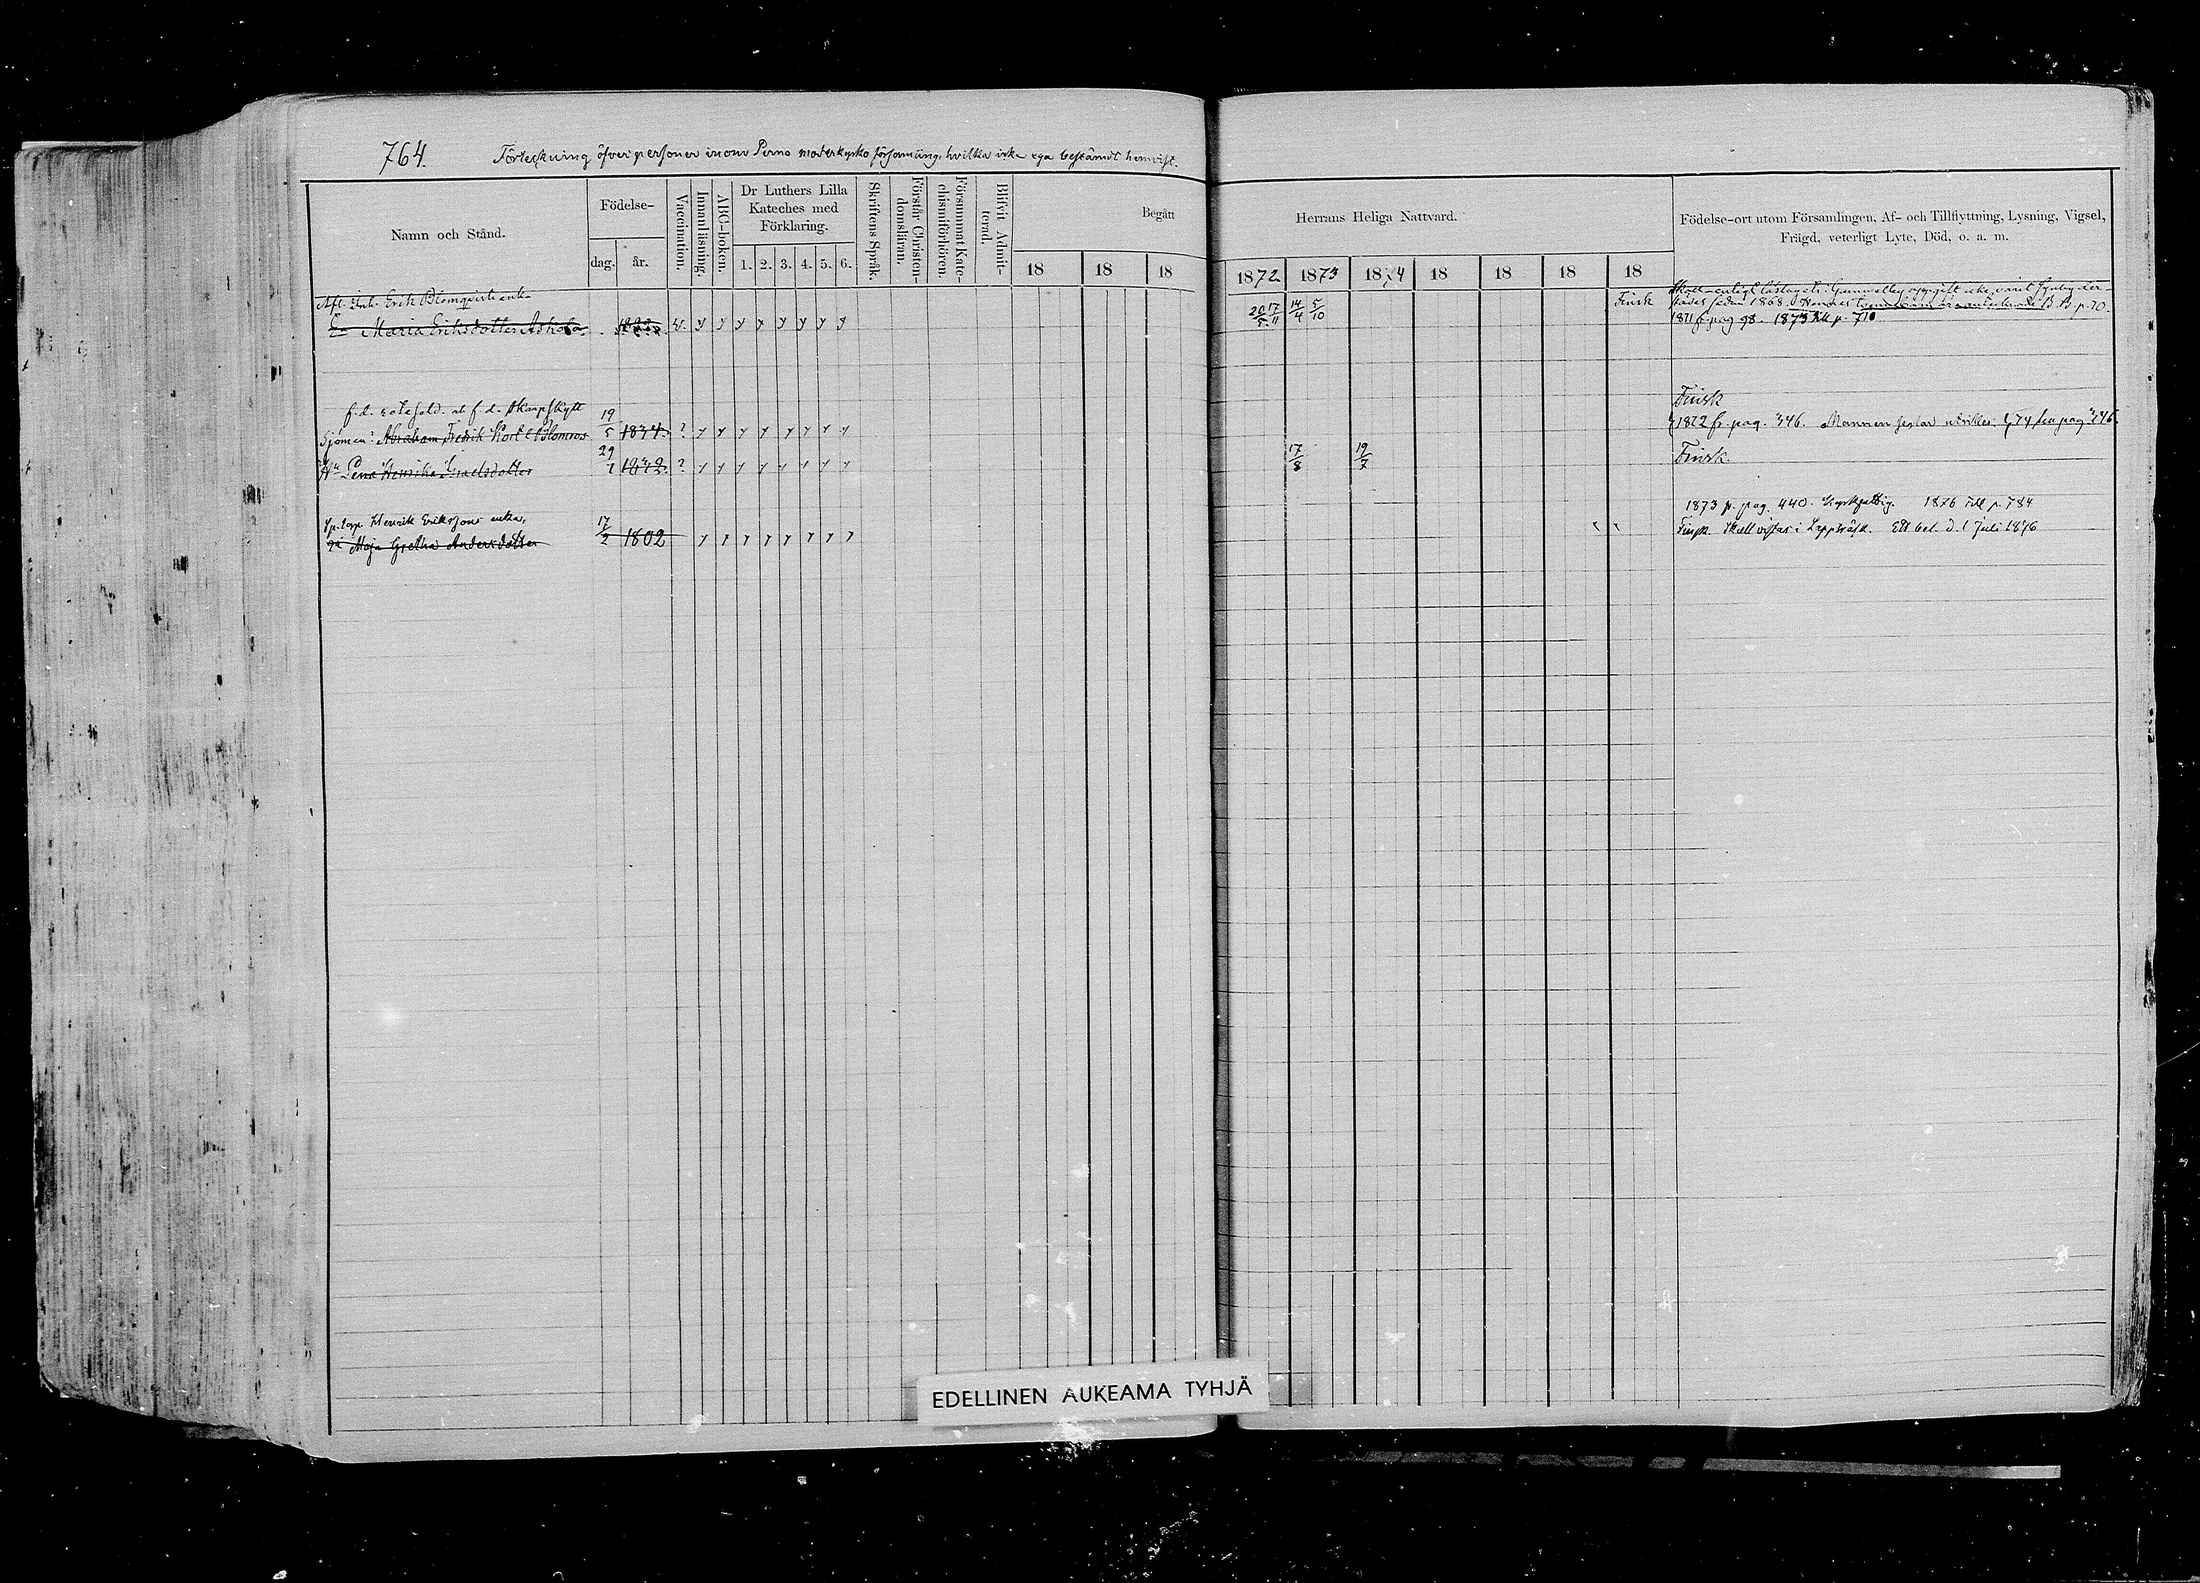 764.
Förteckning öfver personer inom Perno moderkyrko församling, hvilka icke ega bestämdt hemvist.
Namn och Stånd.
Födelse-
dag. år.
Vaccination.
Innanläsning.
ABC-boken.
Dr Luthers Lilla
Kateches med
Förklaring.
1. 2. 3. 4. 5. 6.
Skriftens Språk.
Förstår Christen-
domsläran.
Försummat Kate-
chismiförhören.
Blifvit Admit-
terad.
Begått
18 18 18
Herrans Heliga Nattvard.
1872 1873 1874 18 18 18 18
Födelse-ort utom Församlingen, Af- och Tillflyttning, Lysning, Vigsel,
Frägd, veterligt Lyte, Död, o. a. m.
Afl. Inh. Erik Blomqvists enka
Maria Eriksdotter Askola v. y y y y y y y y
20/5 17/11 14/4 5/10 Finsk
sedan 1868. p. 70.
1871 fr. pag 98. 1873 till p. 710
f.d. f.d. skarpskytt
Sjöman Abraham Fredrik Karl Blomroos 19/5 1834. ? y y y y y y y y
Finsk
1872 fr. pag. 346. Mannen utrikes
Hu Lena Henrika Israelsdotter 29/1 ? y y y y y y y y
17/8 19/7 Finsk.
1873 fr. pag. 440. 1876 till p. 784
Henrik Erikssons enka,
Maja Gretha Andersdotter 17/2 1802 y y y y y y y y
Finsk. Skall vistas i Lappträsk. bet. d. 1 Juli 1876
EDELLINEN AUKEAMA TYHJÄ